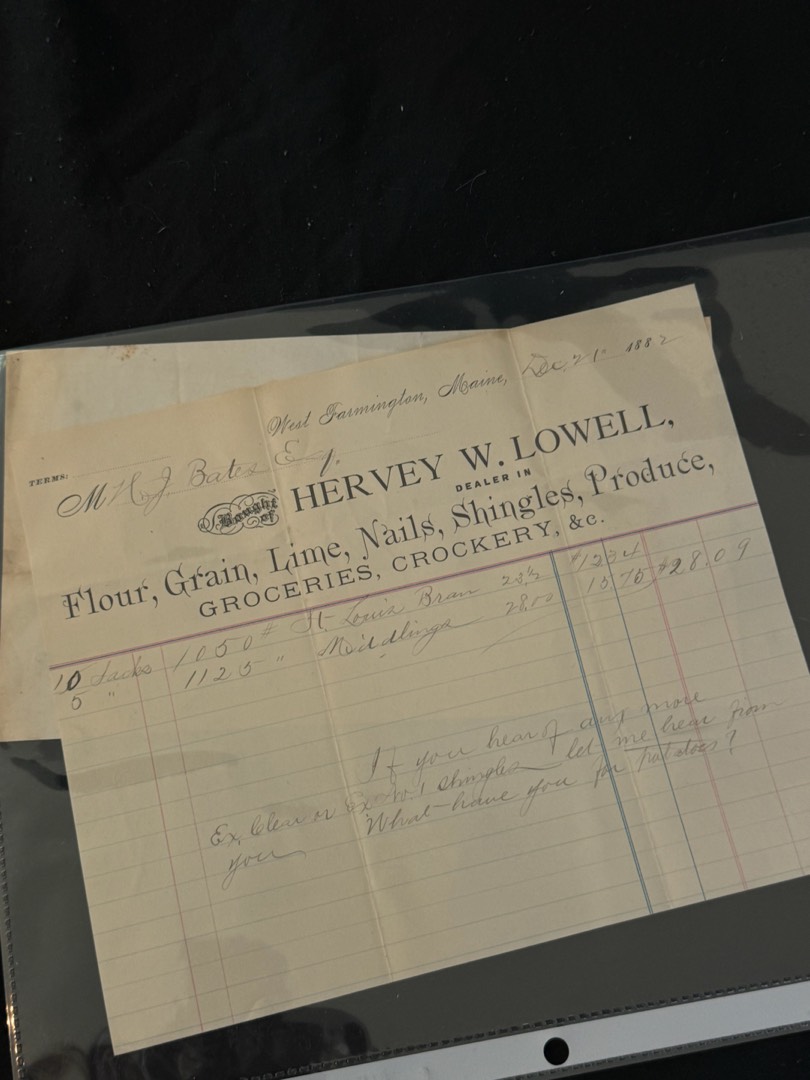 West Farmington, Maine, Dec. 21 1882
TERMS:
M H. J. Bates Esq.
Bought of HERVEY W. LOWELL,
DEALER IN
Flour, Grain, Lime, Nails, Shingles, Produce,
GROCERIES, CROCKERY, &c.
10 Sacks 1050# St Louis Bran 23½ $12 34
5 " 1125 " Middlings 28.00 15 75 $28.09
If you hear of any more
Ex. Clear or Ex No. 1 Shingles let me hear from
you What have you for potatoes?